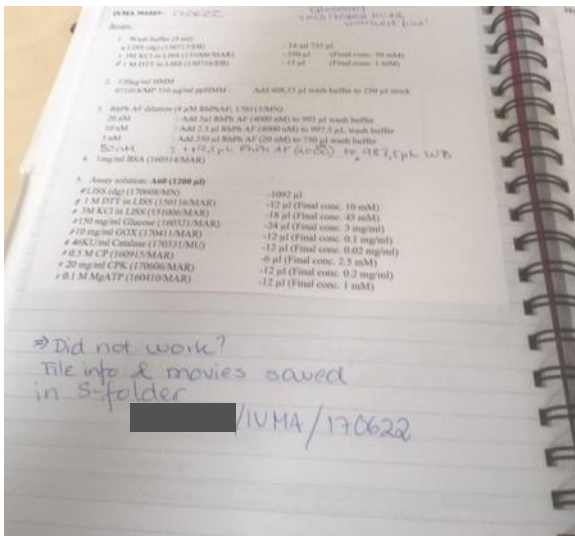 170622
1. Wash buffer
LISS (dg) (150717/EB) - 14 ml 735 µl
3M KCl in LISS (151006/MAR) - 250 µl (Final conc. 50 mM)
1 M DTT in LISS - 15 µl (Final conc. 1 mM)
2. 120µg/ml HMM
Add 408,33 µl wash buffer to 250 µl stock
3. RhPh AF dilution (4 µM RhPhAF; 150315/MN)
20 nM : Add 5µl RhPh AF (4000 nM) to 995 µl wash buffer
10 nM : Add 2,5 µl RhPh AF (4000 nM) to 997,5 µL wash buffer
5 nM : Add 250 µl RhPh AF (20 nM) to 750 µl wash buffer
50nM : +12,5µL RhPh AF (4000) to 987,5µL WB
4. 1mg/ml BSA (160514/MAR)
5. Assay solution: A60 (1200 µl)
LISS (dg) (170608/MN) -1092 µl
1 M DTT in LISS (150116/MAR) -12 µl (Final conc. 10 mM)
3M KCl in LISS (151006/MAR) -18 µl (Final conc. 45 mM)
150 mg/ml Glucose (160321/MAR) -24 µl (Final conc. 3 mg/ml)
10 mg/ml GOX (170411/MAR) -12 µl (Final conc. 0.1 mg/ml)
46KU/ml Catalase (170331/MU) -12 µl (Final conc. 0.02 mg/ml)
0.5 M CP (160915/MAR) -6 µl (Final conc. 2.5 mM)
20 mg/ml CPK (170606/MAR) -12 µl (Final conc. 0.2 mg/ml)
0.1 M MgATP (160410/MAR) -12 µl (Final conc. 1 mM)
⇒ Did not work?
File info & movies saved
in S-folder
/IVMA/170622